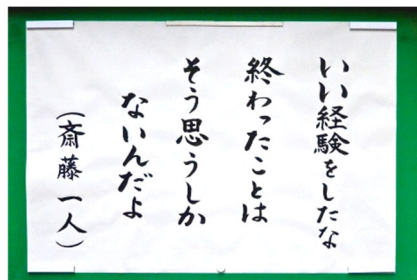 いい経験をしたな
終わったことは
そう思うしか
ないんだよ
(斎藤一人)